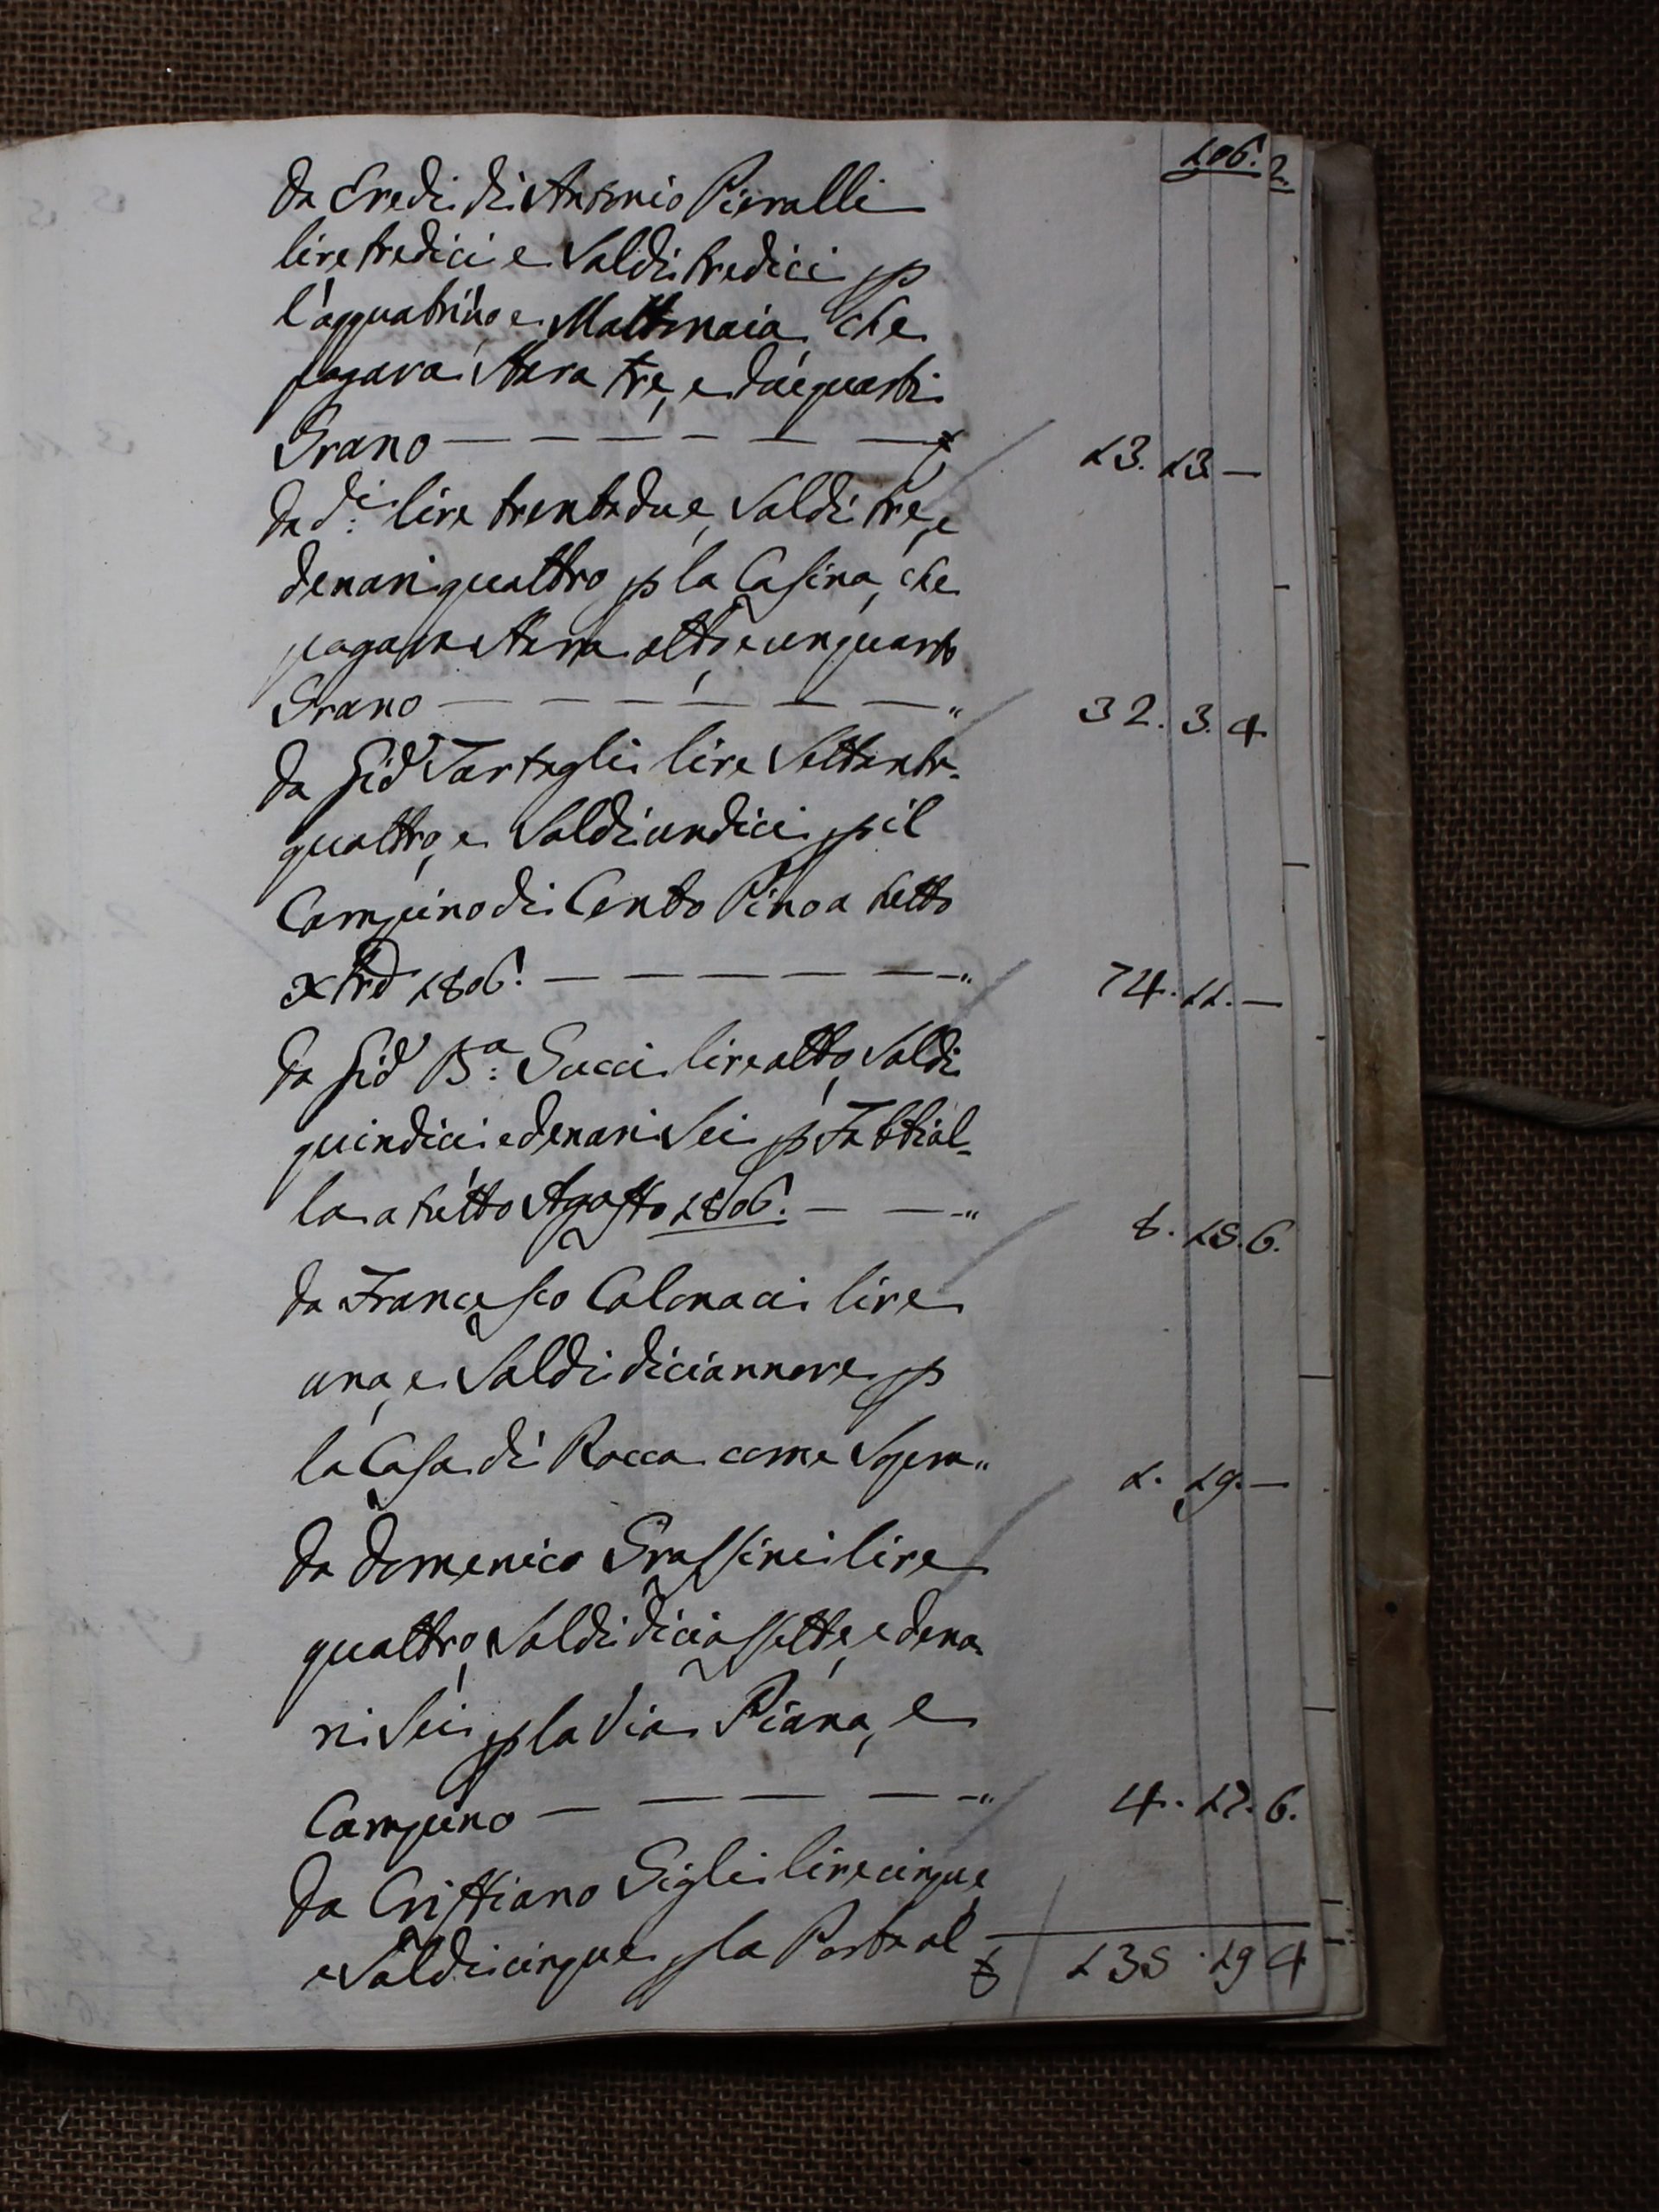 106. 2.
Da Eredi di Antonio Pieralli
lire tredici e Soldi tredici p
l'acquatrino e Mattonaia che
pagava Stara tre, e due quarti
Grano — — — — — — 13. 13 —
Da d.i lire trentadue, Soldi tre, e
denari quattro p la Casina, che
pagava Stara otto, e un quarto
Grano — — — — — — „ 32. 3. 4
Da Gio Tartagli lire Settanta-
quattro, e Soldi undici p il
Campino di Cento Pino a tutto
Xbre 1806. — — — — — „ 74. 11. —
Da Gio B.a Succi lire otto, Soldi
quindici e denari Sei p
la a tutto Agosto 1806. — — „ 8. 15. 6.
Da Francesco Calonaci lire
una, e Soldi diciannove p
la Casa di Rocca come Sopra „ 1. 19. —
Da Domenico Grassini lire
quattro, Soldi diciassette, e dena-
ri Sei p la Via Piana, e
Campino — — — — „ 4. 17. 6.
Da Cristiano Sigli lire cinque
e Soldi cinque p la Porta al
135. 19 4